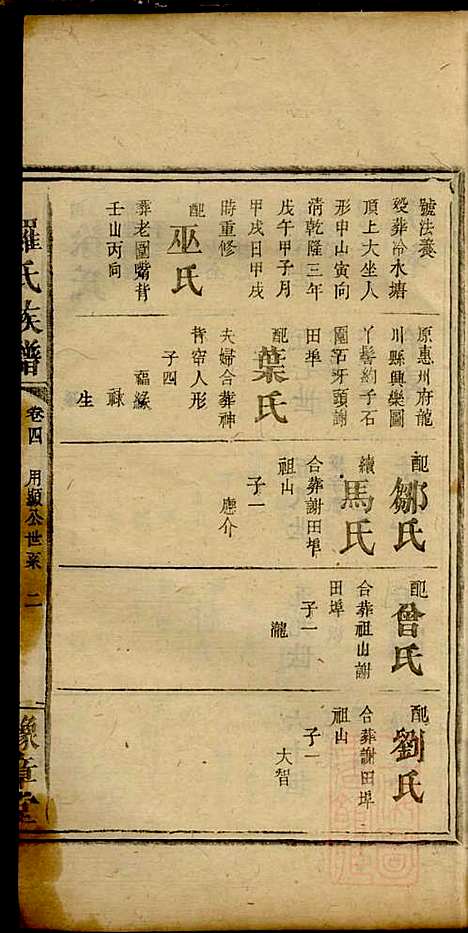 號法養
歿葬冷水塘
頂上大坐人
形中山寅向
清乾隆三年
戊午甲子月
甲戌日甲戌
時重修
配
巫氏
葬老圍嘴背
壬山丙向
原惠州府龍
川縣興樂圖
丫髻約子石
圍石牙頭謝
田埠
配
葉氏
夫婦合葬神
背窂人形
子四
福緣
祿
生
配
鄒氏
續
馬氏
合葬謝田埠
祖山
子一
應介
配
曾氏
合葬祖山謝
田埠
子一
瀧
配
劉氏
合葬謝田埠
祖山
子一
大智
羅氏族譜
卷四
用顯公世系
二
豫章堂